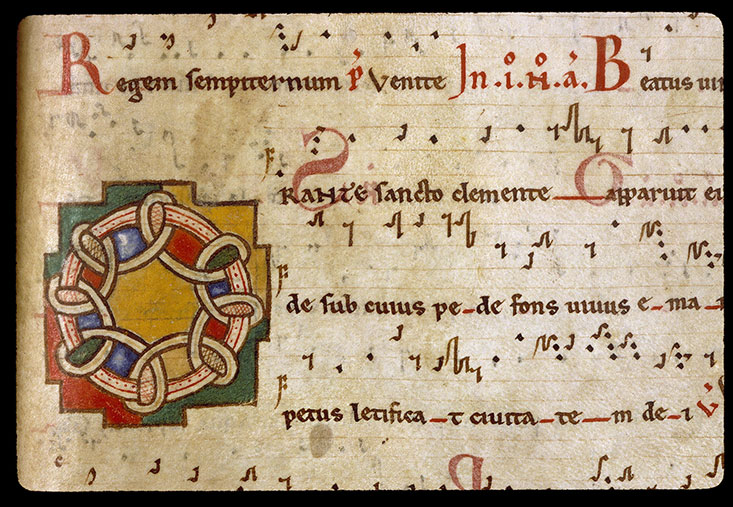 Regem sempiternum P Venite In .i.N.a. Beatus uir
ORANTE sancto clemente apparuit ei
de sub cuius pe-de fons uiuus e-ma-
petus letifica-t ciuita-te-m de-i V